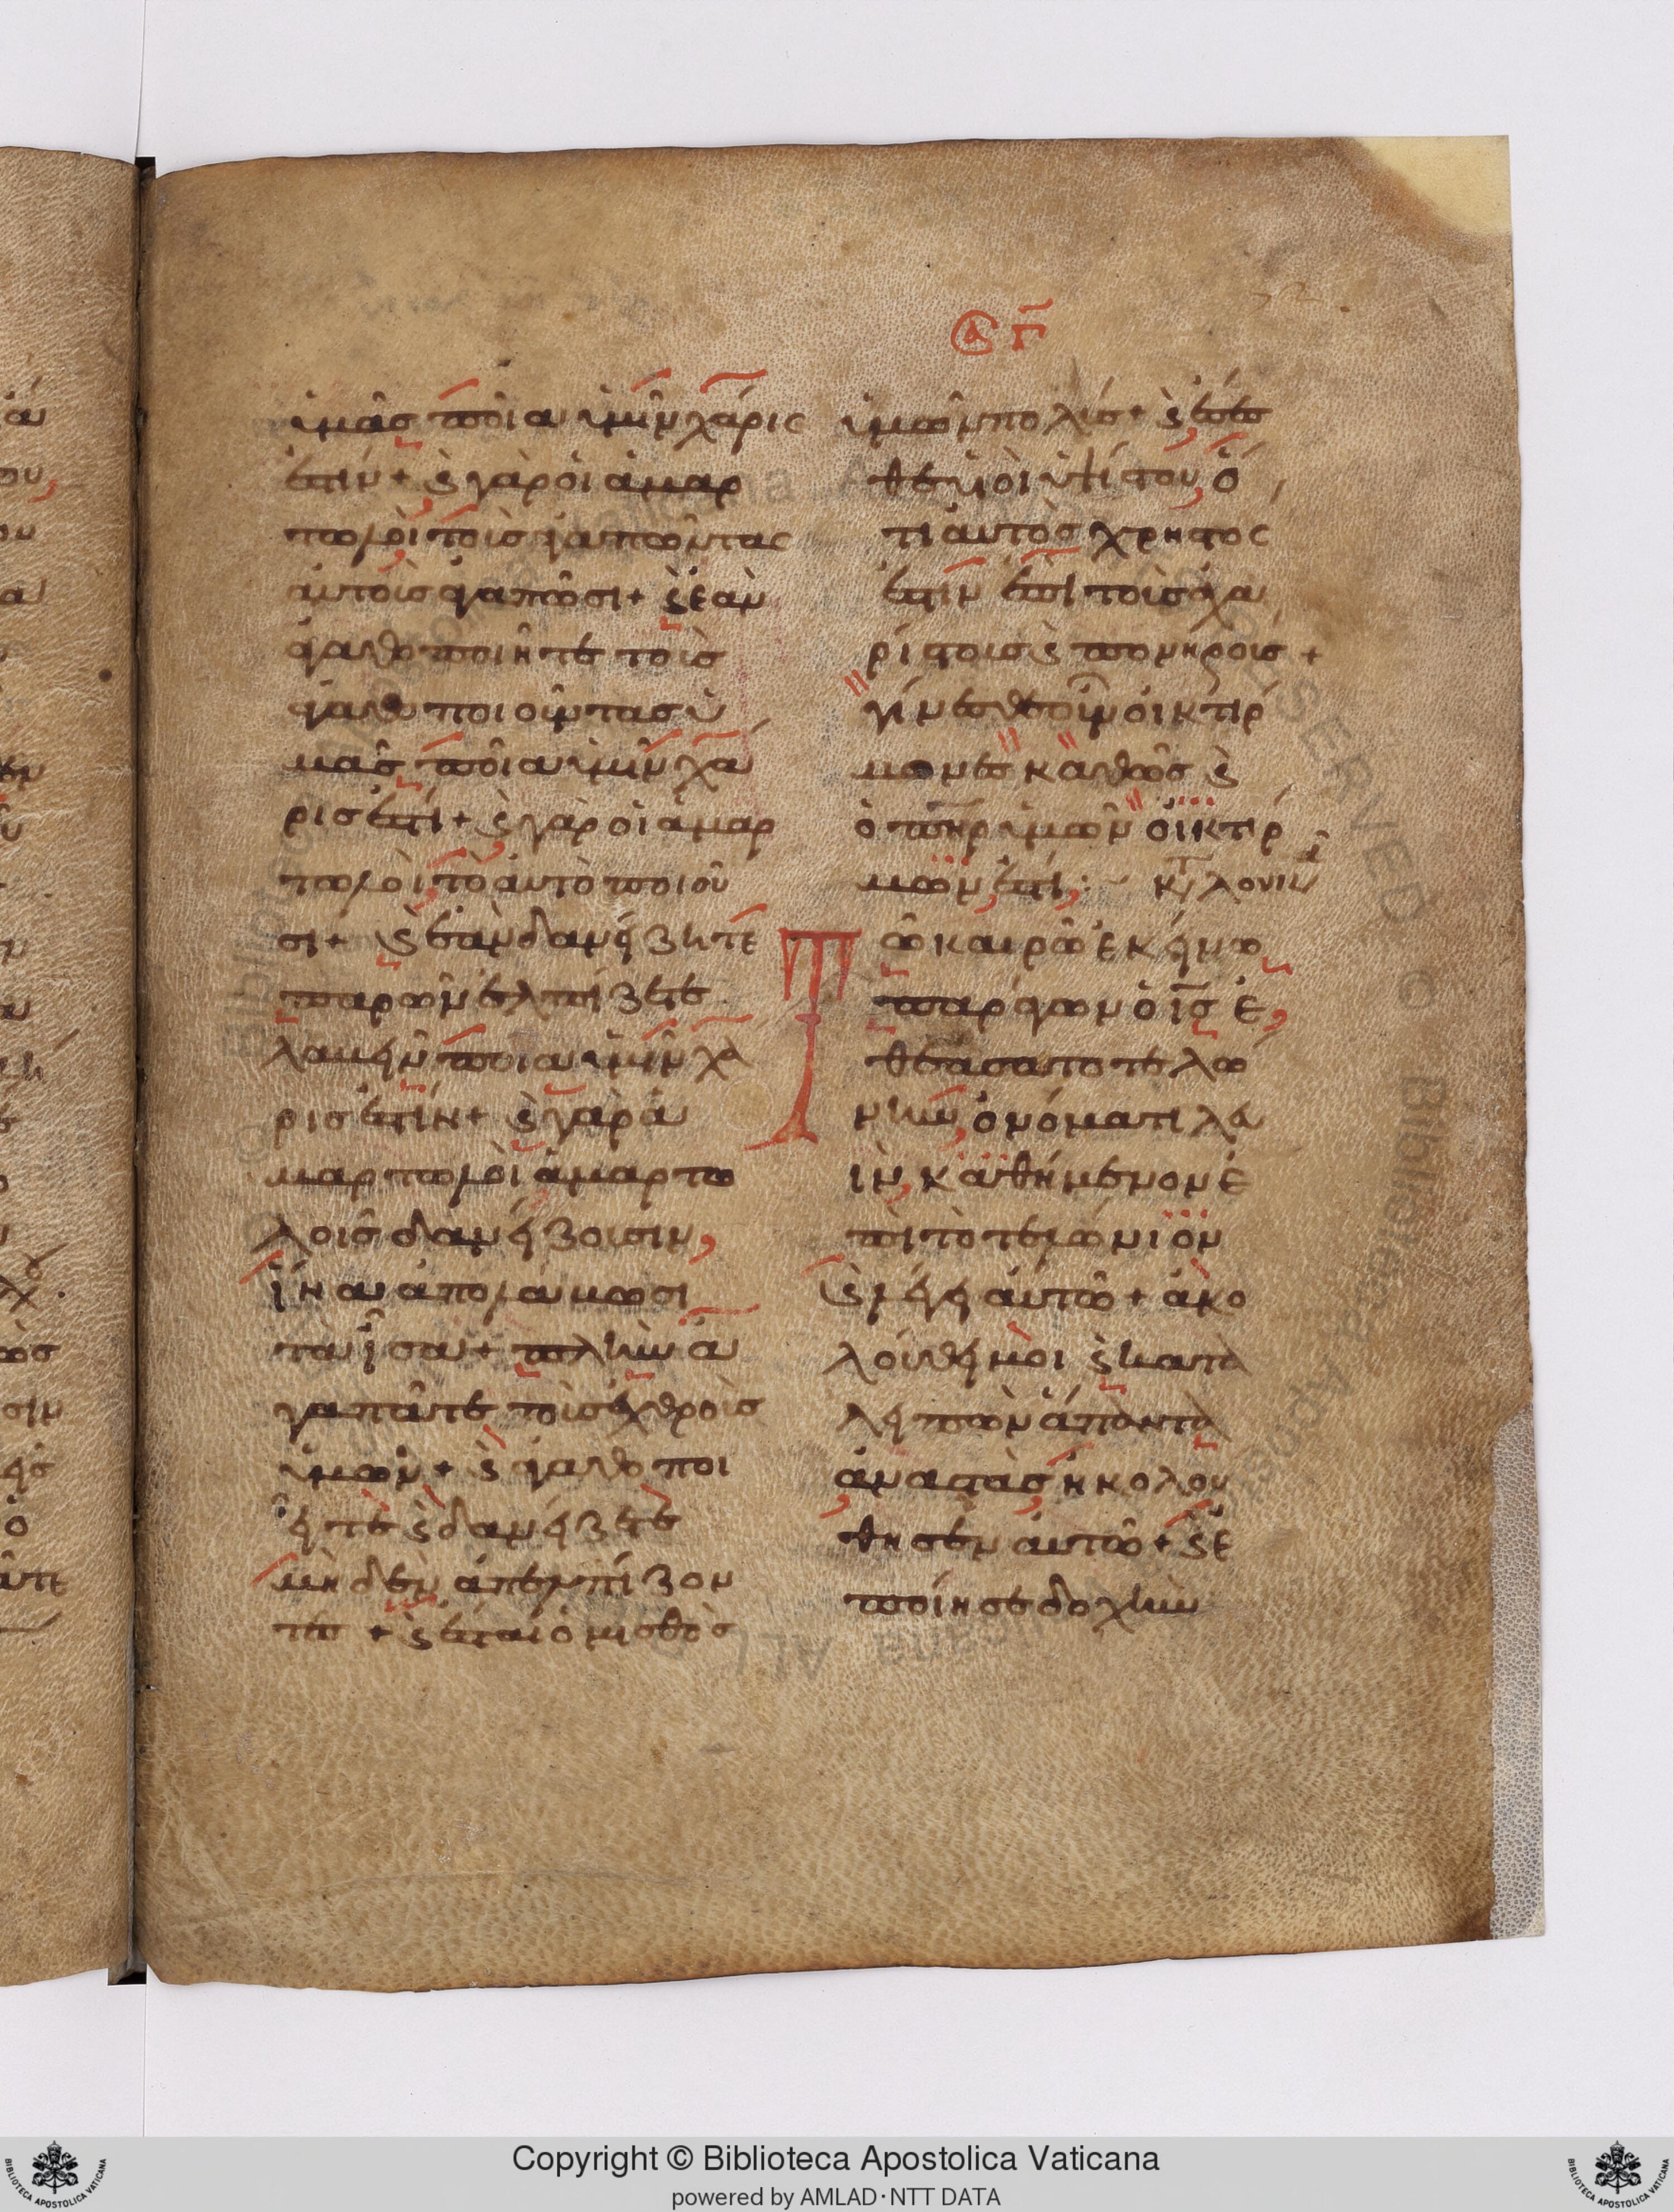 ὑμᾶς ποία ὑμῖν χάρις
ἐστίν + ϗ γὰρ οἱ ἁμαρ
τωλοὶ τοὺς ἀγαπῶντας
αὐτοὺς ἀγαπῶσι + ϗ ἐὰν
ἀγαθοποιῆτε τοὺς
ἀγαθοποιοῦντας ὑ
μᾶς ποία ὑμῖν χά
ρις ἐστί + ϗ γὰρ οἱ ἁμαρ
τωλοὶ τὸ αὐτὸ ποιοῦ
σι + ϗ ἐὰν δανείζητε
παρ ὧν ἐλπίζετε
λαβεῖν ποία ὑμῖν χά
ρις ἐστίν + ϗ γὰρ ἁ
μαρτωλοὶ ἁμαρτω
λοῖς δανείζουσιν
ἵνα ἀπολάβωσι
τὰ ἴσα + πλὴν ἀ
γαπᾶτε τοὺς ἐχθροὺς
ὑμῶν + ϗ ἀγαθοποι
εῖτε ϗ δανείζετε
μηδὲν ἀπελπίζον
τες + ϗ ἔσται ὁ μισθὸς
Γ̅
ὑμῶν πολύς + ϗ ἔσεσ
θε υἱοὶ ὑψίστου ὅ
τι αὐτὸς χρηστός
ἐστιν ἐπὶ τοὺς ἀχα
ρίστους ϗ πονηρούς +
γίνεσθε οὖν οἰκτίρ
μονες καθὼς ϗ
ὁ π̅η̅ρ ὑμῶν οἰκτίρ
μων ἐστί :
Τῶ καιρῶ ἐκείνω
παράγων ὁ ι̅ς̅ ἐ
θεάσατο τελώ
νην ὀνόματι λε
ὶν καθήμενον ἐ
πὶ τὸ τελώνιον
ϗ λέγει αὐτῶ + ἀκο
λούθει μοι ϗ κατα
λειπὼν ἅπαντα
ἀναστὰς ἠκολού
θησεν αὐτῶ + ϗ ἐ
ποίησε δοχὴν
Copyright © Biblioteca Apostolica Vaticana
powered by AMLAD·NTT DATA